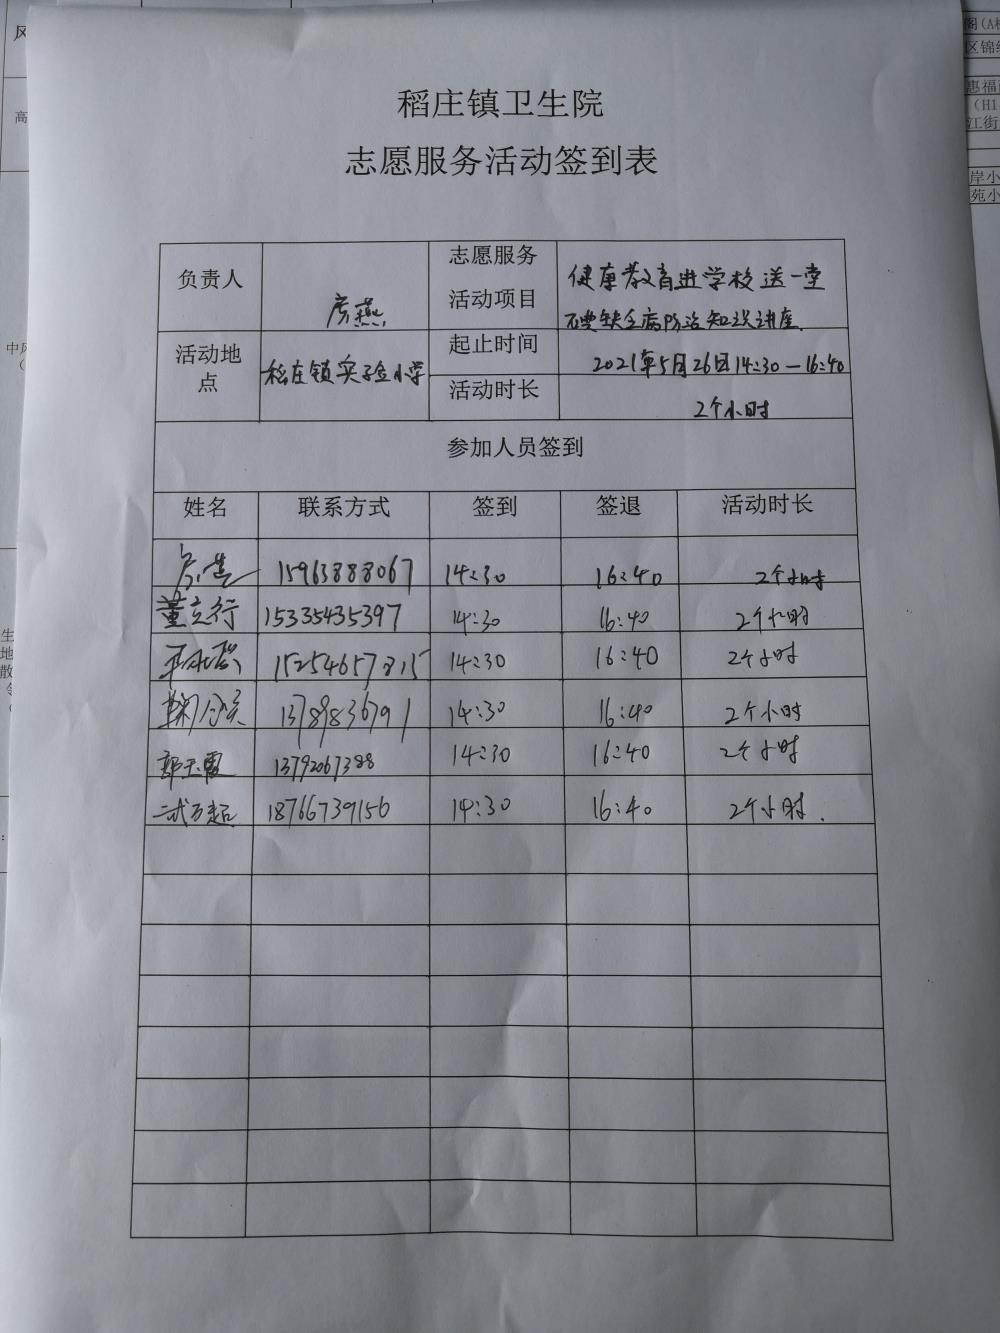 稻庄镇卫生院
志愿服务活动签到表
负责人 房燕 志愿服务活动项目 健康教育进学校送一堂
碘缺乏病防治知识讲座
活动地点 稻庄镇实验小学 起止时间 2021年5月26日14:30—16:40
活动时长 2个小时
参加人员签到
姓名 联系方式 签到 签退 活动时长
房燕 15963888067 14:30 16:40 2个小时
董立行 15335435397 14:30 16:40 2个小时
15254657815 14:30 16:40 2个小时
13789836791 14:30 16:40 2个小时
郭玉霞 13792067388 14:30 16:40 2个小时
18766739156 14:30 16:40 2个小时.